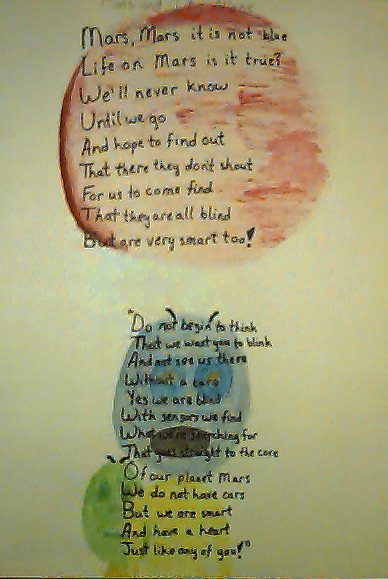 Mars, Mars it is not blue
Life on Mars is it true?
We'll never know
Until we go
And hope to find out
That there they don't shout
For us to come find
That they are all blind
But are very smart too!
"Do not begin to think
That we want you to blink
And not see us there
Without a care
Yes we are blind
With sensors we find
What we're searching for
That goes straight to the core
Of our planet Mars
We do not have cars
But we are smart
And have a heart
Just like any of you!"